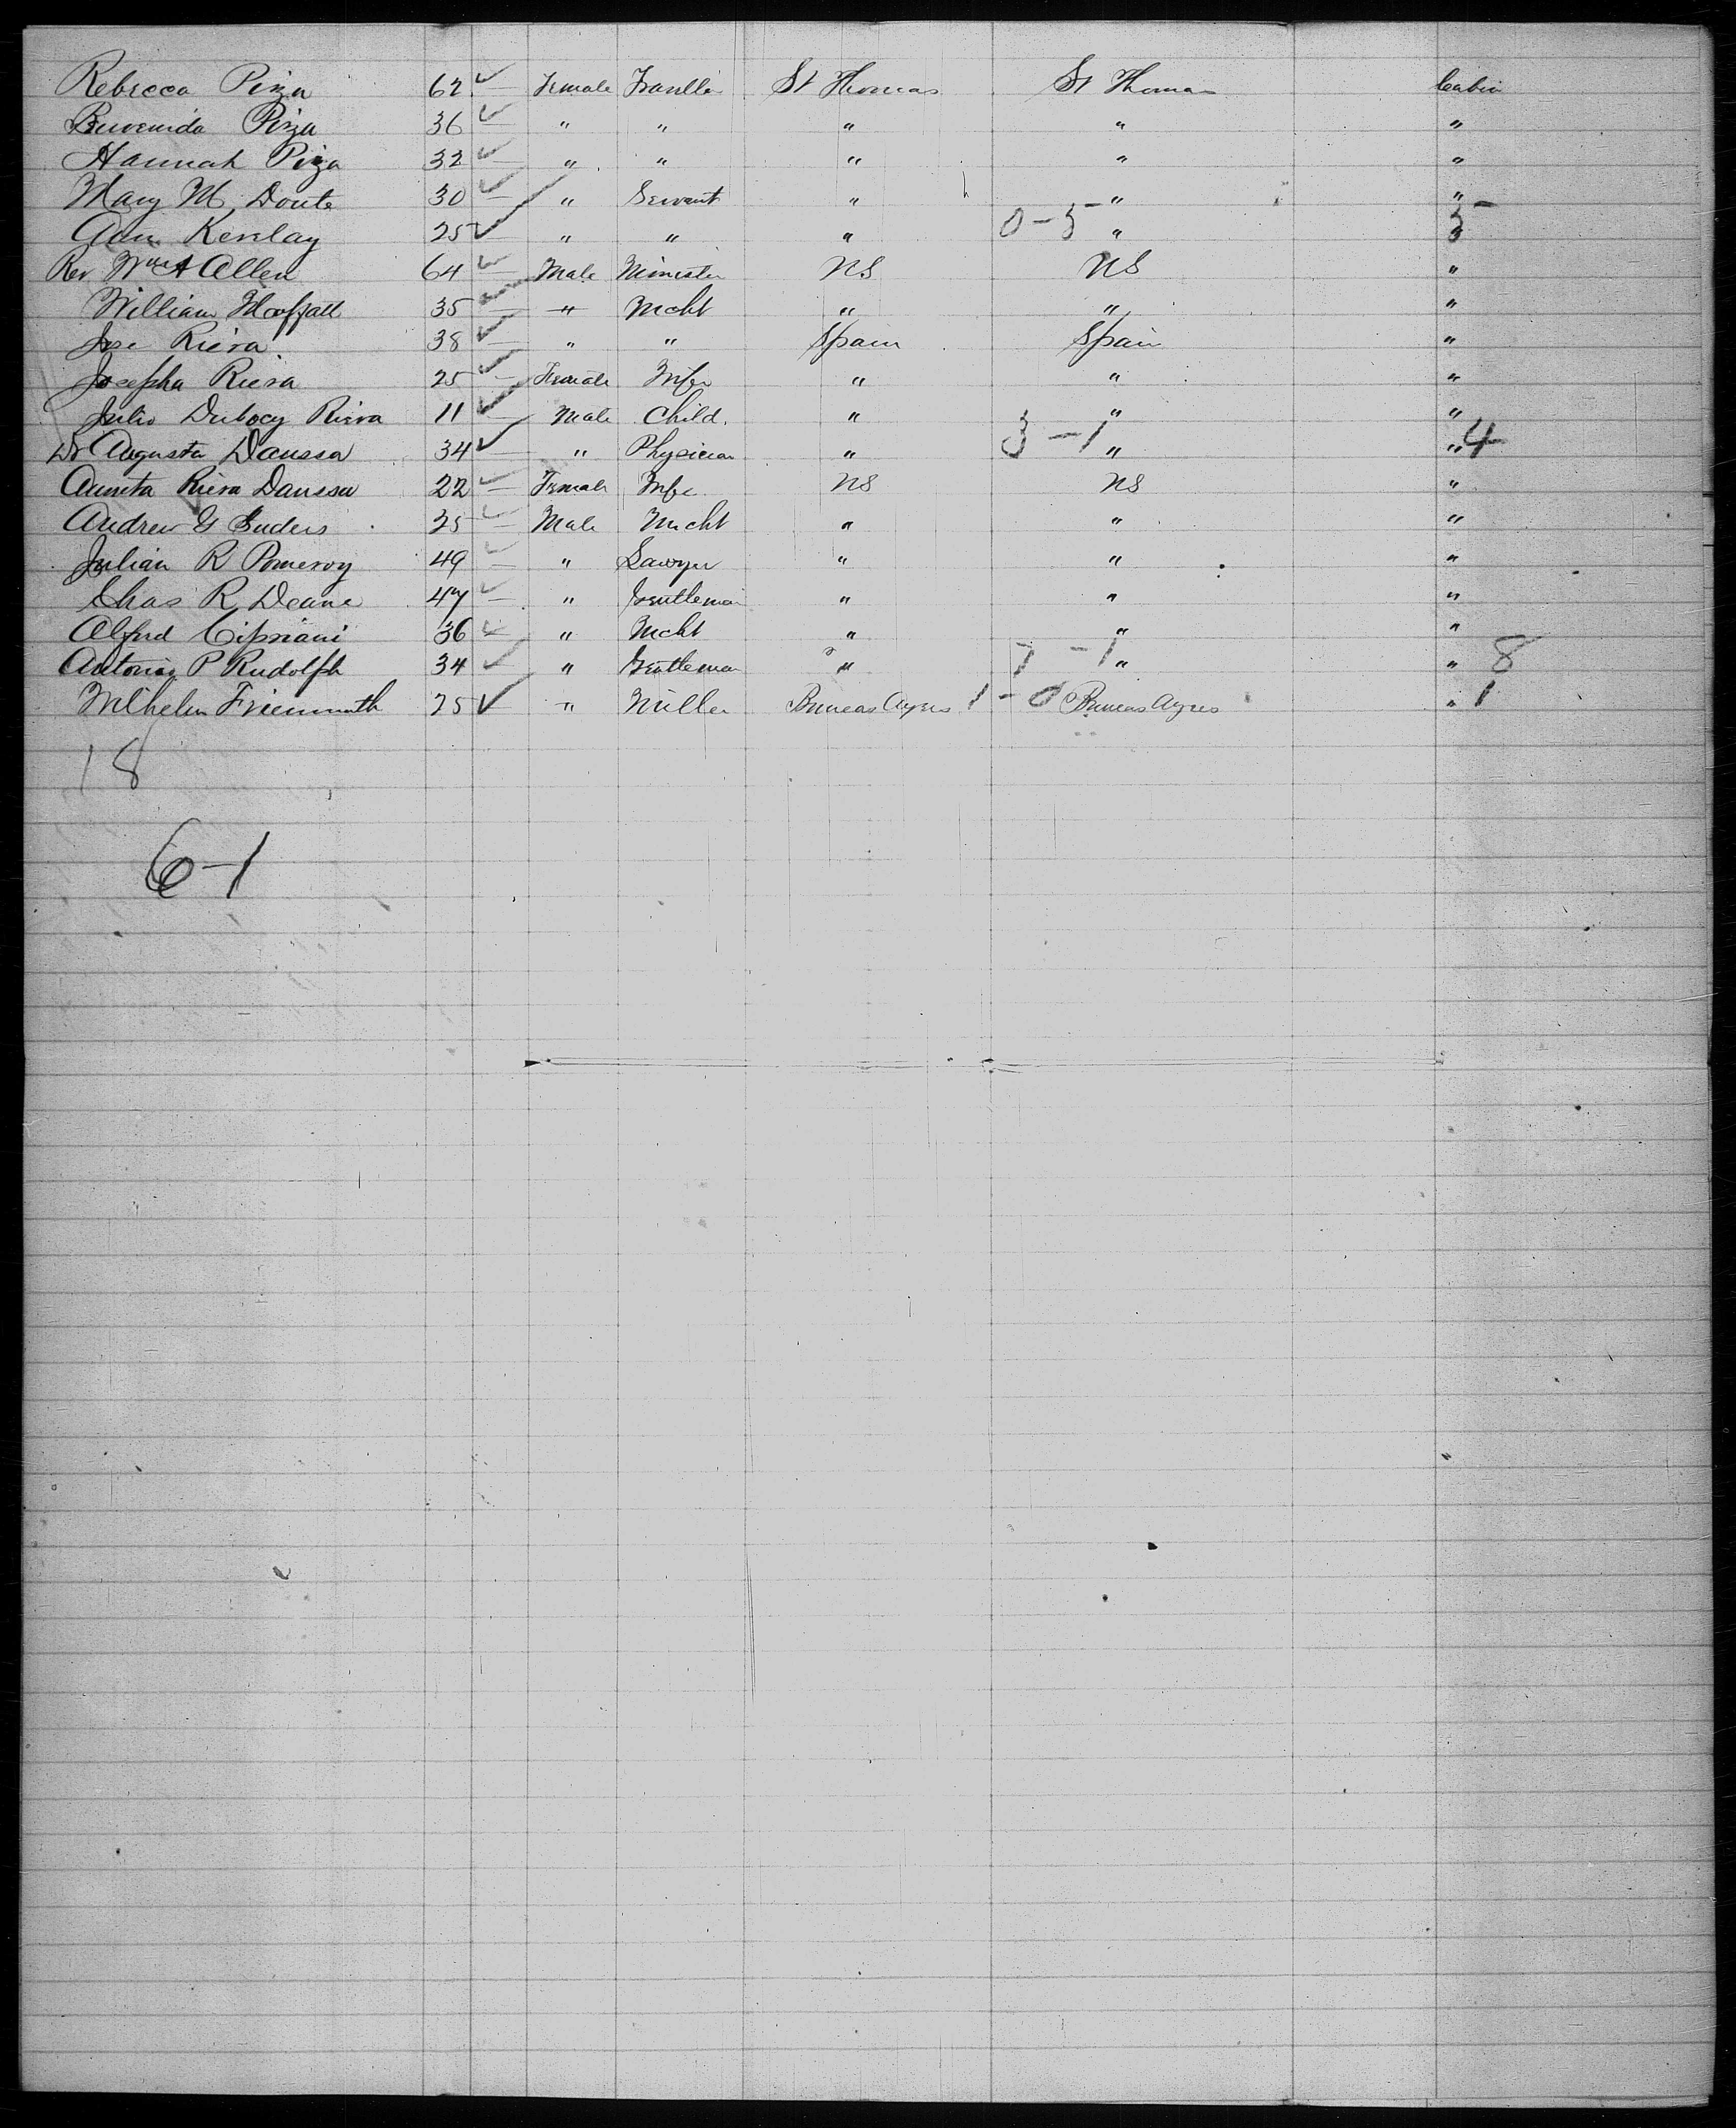 Rebecca Piza 62 Female Travller St Thomas St Thomas Cabin
Buvenida Piza 36 " " " " "
Hannah Piza 32 " " " " "
Mary M. Donte 30 " Servant " " "
Ann 25 " " " 0-5 " " 5
Rev Wm A Allen 64 Male Minister US US "
William Moffatt 35 " Mcht " " "
Jose Riera 38 " " Spain Spain "
Josepha Riera 25 Female Wife " " "
Julio Dubocy Riera 11 Male Child. " " "
Dr Augusta Danssa 34 " Physician " 3-1 " " 4
Anneta Riera Danssa 22 Female Wife US US "
Andrew G 25 Male Mcht " " "
Julian R Pomeroy 49 " Lawyer " " "
Chas R Deane 47 " Gentleman " " "
Alfred Cipriani 36 " Mcht " " "
Antonio P Rudolph 34 " Gentleman " 7-1 " " 8
Wilhelm Friemuth 25 " Miller Buneas Ayres 1-0 Buneas Ayres " 1
18
6-1